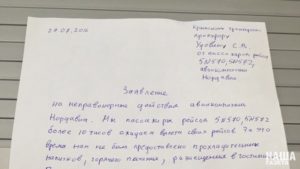 29.08.2016
транспортному
прокурору
Удовину С.М.
от пассажиров рейса
5N570, 5N572
авиакомпании
Нордавиа
Заявление
на неправомерные действия авиакомпании
Нордавиа. Мы пассажиры рейсов 5N570, 5N572
более 10 часов ожидаем время своих рейсов за это
время нам не были предоставлены прохладительные
напитки, горячее питание, размещения в гостинице
НАША
ГАЗЕТА